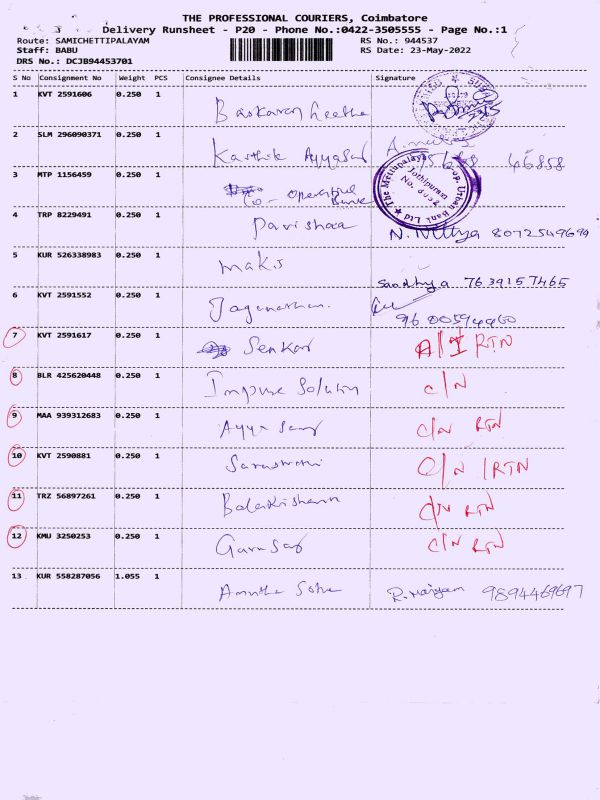 THE PROFESSIONAL COURIERS, Coimbatore
Delivery Runsheet - P20 - Phone No.:0422-3505555 - Page No.:1
Route: SAMICHETTIPALAYAM RS No.: 944537
Staff: BABU RS Date: 23-May-2022
DRS No.: DCJB94453701
S No Consignment No Weight PCS Consignee Details Signature
1 KVT 2591606 0.250 1 Baskaran Geetha
2 SLM 296090371 0.250 1 Karthik Ayyasamy 46858
3 MTP 1156459 0.250 1 Co-operative Bank
The Mettupalayam Co-op. Urban Bank Ltd
Jothipuram
4 TRP 8229491 0.250 1 Pavishaa N. Nithya 8072549694
5 KUR 526338983 0.250 1 maks Sandhya 7639157465
6 KVT 2591552 0.250 1 Jaganathan 9600594460
7 KVT 2591617 0.250 1 Senkar A/I RTN
8 BLR 425620448 0.250 1 Solution C/N
9 MAA 939312683 0.250 1 Ayya Samy C/N RTN
10 KVT 2590881 0.250 1 Saraswathi O/N / RTN
11 TRZ 56897261 0.250 1 Balakrishnan C/N RTN
12 KMU 3250253 0.250 1 C/N RTN
13 KUR 558287056 1.055 1 9894469697